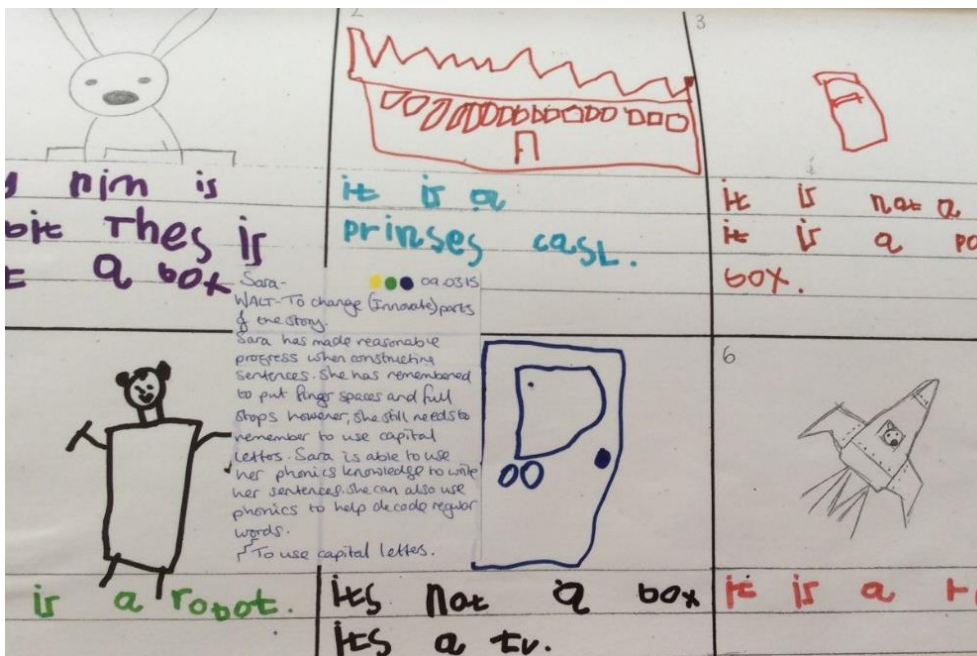 2
3
nim is
Thes is
a box
it is a
prinses casl.
it is nat a
it is a
box.
Sara-
09.03.15
WALT- To change (Innovate) parts
of the story.
Sara has made reasonable
progress when constructing
sentences. She has remembered
to put finger spaces and full
stops however, she still needs to
remember to use capital
letters. Sara is able to use
her phonics knowledge to write
her sentences. She can also use
phonics to help decode regular
words.
To use capital letters.
is a robot.
its nat a box
its a tv.
6
it is a